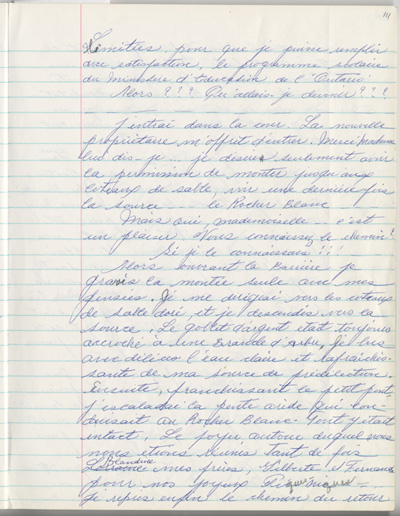 111
Limitées, pour que je puisse remplir
avec satisfaction, le programme scolaire
du Ministère d'Education de l'Ontario.
Alors ??? Qu'allais-je devenir ???
J'entrai dans la cour. La nouvelle
propriétaire m'offrit d'entrer. Merci Madame
lui dis-je ... je désire seulement avoir
la permission de monter jusqu'aux
coteaux de sable, voir une dernière fois
la source --- le Rocher Blanc ---
Mais oui mademoiselle -- c'est
un plaisir. Vous connaissez le chemin?
Si je le connaissais!!!
Alors ouvrant la Barrière je
gravis la montée seule avec mes
pensées. Je me dirigeai vers les coteaux
de sable doré, et je descendis vers la
source. Le goblet d'argent était toujours
accroché à une Branche d'Arbre, je bus
avec délices l'eau claire et rafraichis-
sante de ma source de prédilection.
Ensuite, franchissant le petit pont,
j'escaladai la pente aride qui con-
duisait au Rocher Blanc. Tout y était
intact. Le foyer autour duquel nous
nous étions réunis tant de fois
Blandine
mes frères, Wilberte et Fernande
pour nos joyeux Piques Niques ---
Je repris enfin le chemin du retour